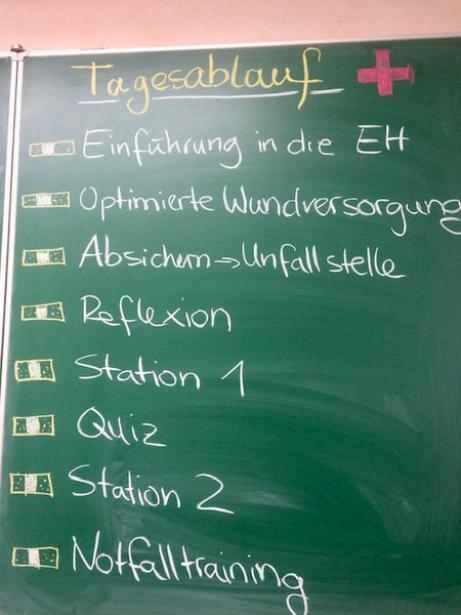 Tagesablauf
Einführung in die EH
Optimierte Wundversorgung
Absichern → Unfallstelle
Reflexion
Station 1
Quiz
Station 2
Notfalltraining